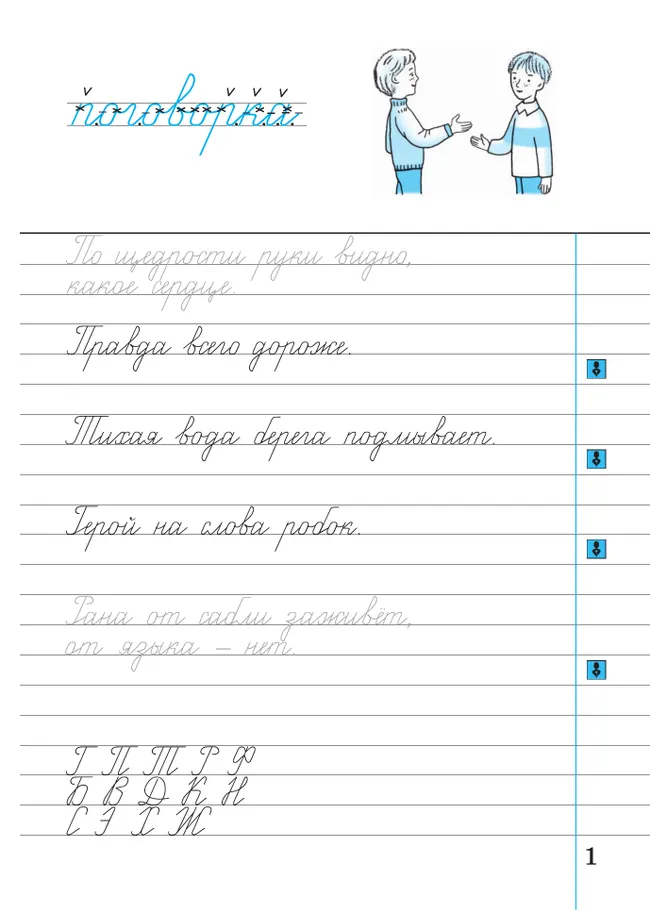 поговорка
По щедрости руки видно,
какое сердце.
Правда всего дороже.
Тихая вода берега подмывает.
Герой на слова робок.
Рана от сабли заживёт,
от языка – нет.
Г П Т Р Ф
Б В Д К Н
С Э Х Ж
1